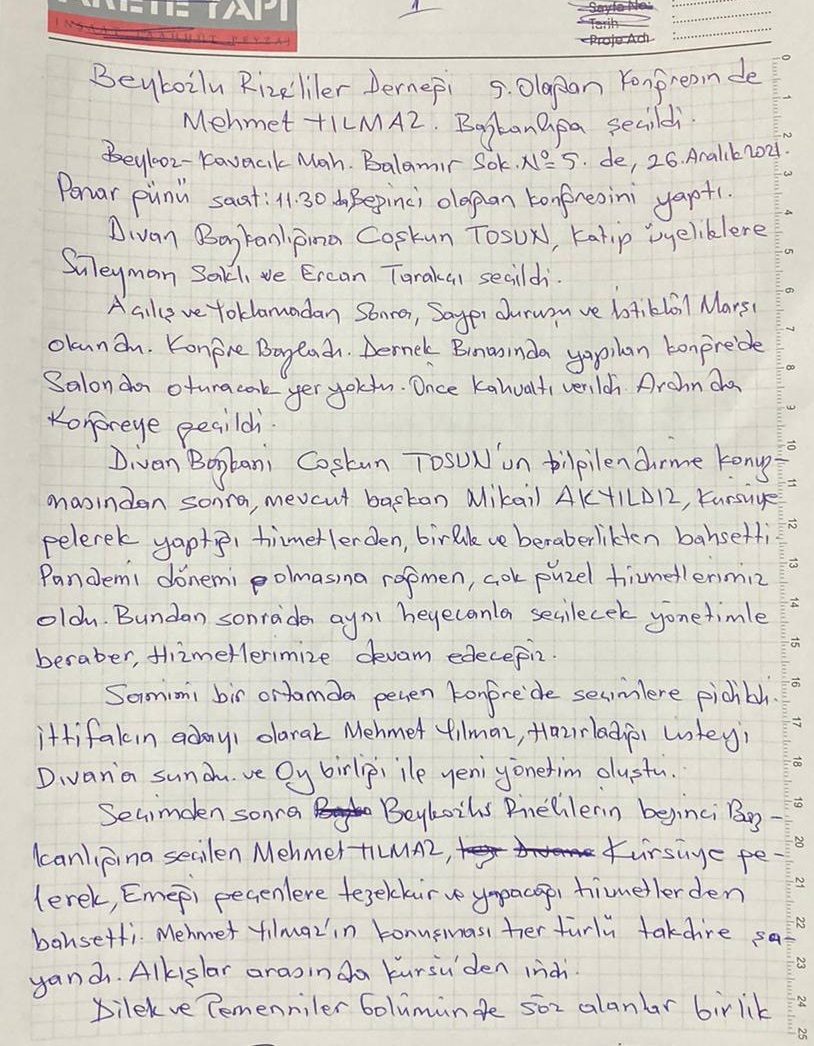 ARETE YAPI
1
Sayfa No:
Tarih
Proje Adı
Beykozlu Rizeliler Derneği 5. Olağan Kongresinde
Mehmet YILMAZ. Başkanlığa seçildi.
Beykoz-Kavacık Mah. Balamir Sok. No= 5. de, 26. Aralık 2021.
Pazar günü saat: 11.30 da Beşinci olağan kongresini yaptı.
Divan Başkanlığına Coşkun TOSUN, Katip üyeliklere
Süleyman Saklı ve Ercan Tarakçı seçildi.
Açılış ve Yoklamadan Sonra, Saygı duruşu ve İstiklâl Marşı
okundu. Kongre Başladı. Dernek Binasında yapılan kongre'de
Salonda oturacak yer yoktu. Önce Kahvaltı verildi. Ardında
Kongreye geçildi.
Divan Başkanı Coşkun TOSUN'un bilgilendirme konuş-
masından sonra, mevcut başkan Mikail AKYILDIZ, Kürsüye
gelerek yaptığı hizmetlerden, birlik ve beraberlikten bahsetti
Pandemi dönemi olmasına rağmen, çok güzel hizmetlerimiz
oldu. Bundan sonrada aynı heyecanla seçilecek yönetimle
beraber, Hizmetlerimize devam edeceğiz.
Samimi bir ortamda geçen kongre'de seçimlere gidildi.
ittifakın adayı olarak Mehmet Yılmaz, Hazırladığı Listeyi
Divan'a sundu. ve Oy birliği ile yeni yönetim oluştu.
Seçimden sonra Beykozlu Rizelilerin beşinci Baş-
kanlığına seçilen Mehmet YILMAZ, Kürsüye ge-
lerek, Emeği geçenlere teşekkür ve yapacağı hizmetlerden
bahsetti. Mehmet Yılmaz'ın konuşması her türlü takdire şa-
yandı. Alkışlar arasında kürsü'den indi.
Dilek ve Temenniler bölümünde söz alanlar birlik
0
1
2
3
4
5
6
7
8
9
10
11
12
13
14
15
16
17
18
19
20
21
22
23
24
25